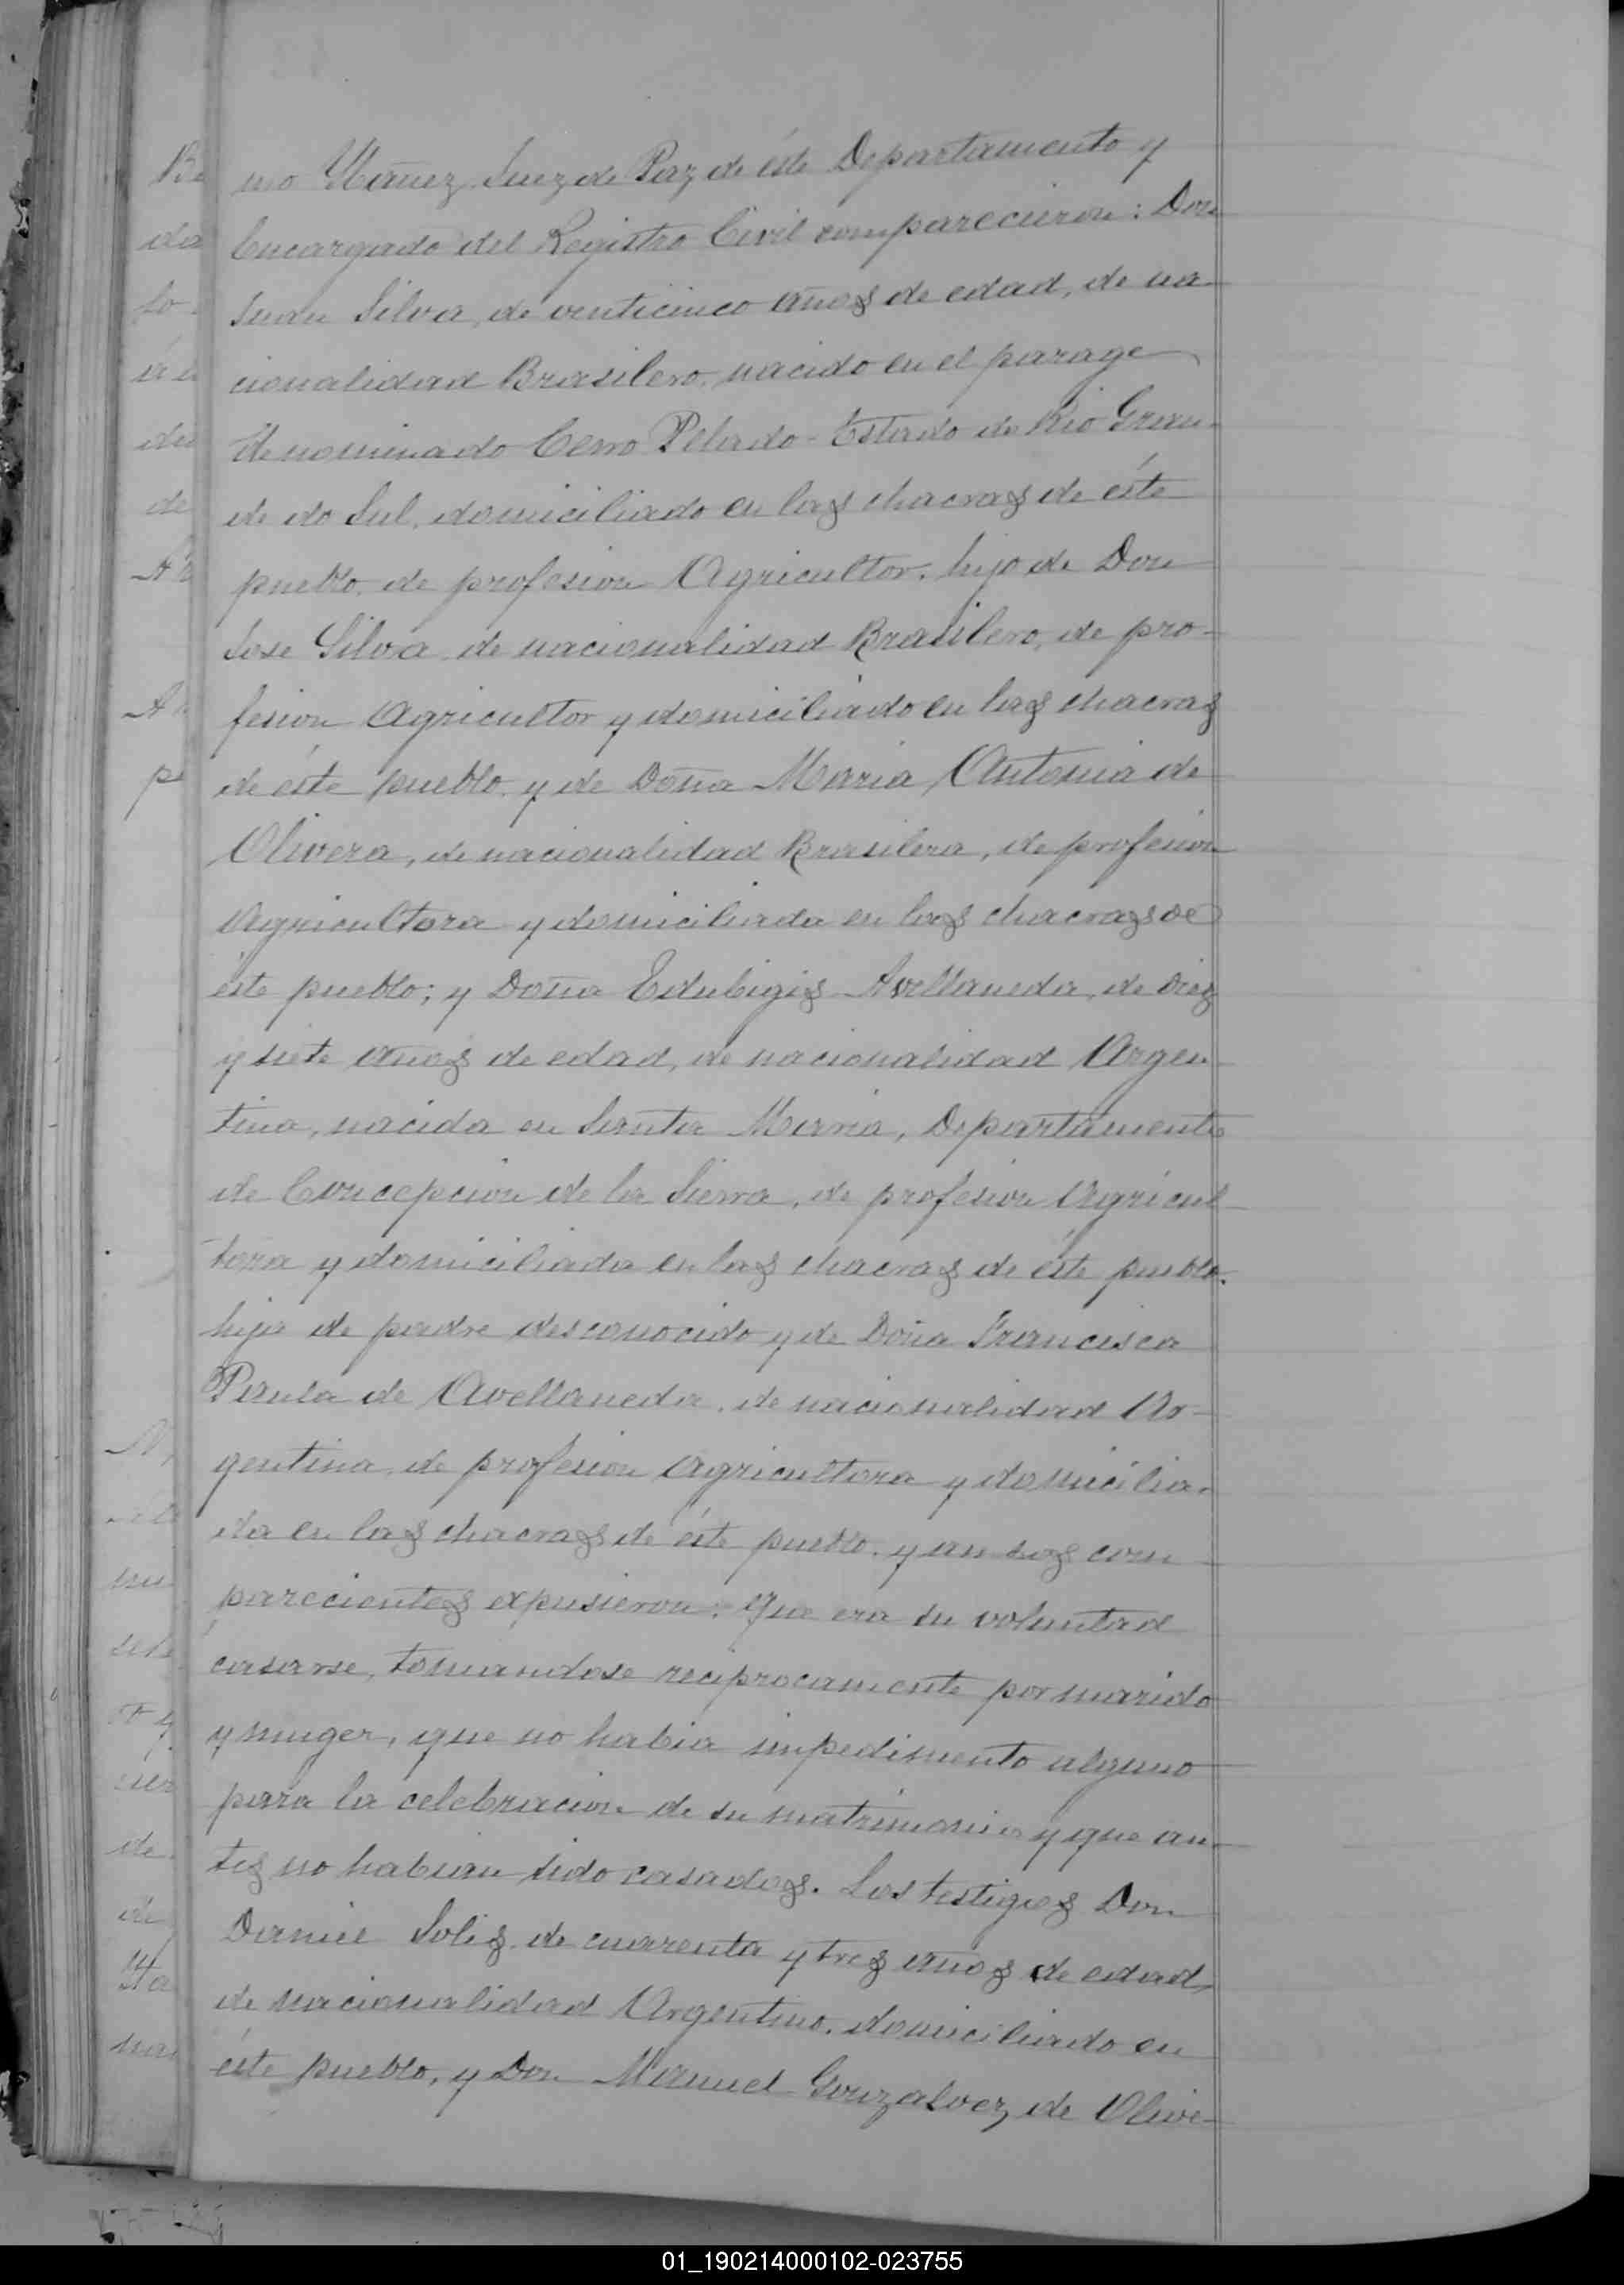 mo Ybañez Juez de Paz de éste Departamento y
Encargado del Registro Civil comparecieron: Don
Juan Silva, de venticinco años de edad, de na-
cionalidad Brasilero, nacido en el parage
denominado Cerro Pelado - Estado de Rio Gran-
de do Sul, domiciliado en las chacras de éste
pueblo, de profesion Agricultor, hijo de Don
Jose Silva de nacionalidad Brasilero, de pro-
fesion Agricultor y domiciliado en las chacras
de éste pueblo, y de Doña Maria Antonia de
Olivera, de nacionalidad Brasilera, de profesion
Agricultora y domiciliada en las chacras de
éste pueblo; y Doña Edubigis Avellaneda, de diez
y siete años de edad, de nacionalidad Argen-
tina, nacida en Santa Maria, Departamento
de Concepcion de la Sierra, de profesion Agricul-
tora y domiciliada en las chacras de éste pueblo.
hija de padre desconocido y de Doña Francisca
Paula de Avellaneda, de nacionalidad Ar-
gentina, de profesion Agricultora y domicilia-
da en las chacras de éste pueblo. y ambos com
parecientes expusieron: Que era su voluntad
casarse, tomandose reciprocamente por marido
y muger, que no habia impedimento alguno
para la celebracion de su matrimonio y que an-
tes no habian sido casados. Los testigos Don
Daniel Solis de cuarenta y tres años de edad,
de nacionalidad Argentino, domiciliado en
éste pueblo, y Don Manuel Gonzalvez de Olive-
01_190214000102-023755